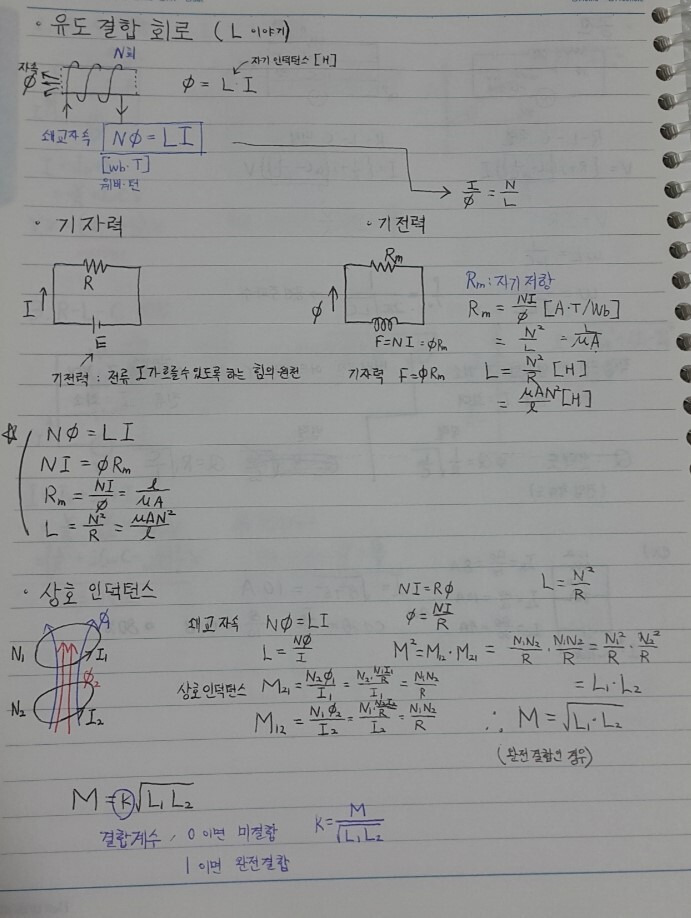 · 유도 결합 회로 (L 이야기)
N회
자속
Φ
Φ = L·I
자기 인덕턴스 [H]
쇄교자속 NΦ = LI
[wb·T]
웨버·턴
I/Φ = N/L
· 기자력
· 기전력
R
I
E
기전력 : 전류 I가 흐를 수 있도록 하는 힘의 원천
Rm
Φ
F=NI=ΦRm
기자력 F=ΦRm
Rm : 자기 저항
Rm = NI/Φ [A·T/Wb]
= N²/L = l/μA
L = N²/R [H]
= μAN²/l [H]
☆ NΦ = LI
NI = ΦRm
Rm = NI/Φ = l/μA
L = N²/R = μAN²/l
· 상호 인덕턴스
Φ₁
N₁ I₁
Φ₂
N₂ I₂
쇄교 자속 NΦ = LI
L = NΦ/I
상호인덕턴스 M₂₁ = N₂Φ₁/I₁ = N₂·(N₁I₁/R)/I₁ = N₁N₂/R
M₁₂ = N₁Φ₂/I₂ = N₁·(N₂I₂/R)/I₂ = N₁N₂/R
NI = RΦ
Φ = NI/R
L = N²/R
M² = M₁₂·M₂₁ = N₁N₂/R · N₁N₂/R = N₁²/R · N₂²/R
= L₁·L₂
∴ M = √(L₁·L₂)
(완전결합인 경우)
M = K√(L₁L₂)
결합계수, 0 이면 미결합
1 이면 완전결합
K = M/√(L₁L₂)